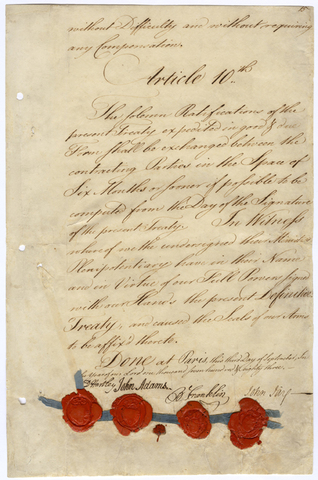 without Difficulty and without requiring
any Compensation.
Article 10th
The solemn Ratifications of the
present Treaty expedited in good & due
Form shall be exchanged between the
contracting Parties in the Space of
Six Months or sooner if possible to be
computed from the Day of the Signature
of the present Treaty. In Witness
whereof we the undersigned their Ministers
Plenipotentiary have in their Name
and in Virtue of our Full Powers signed
with our Hands the present Definitive
Treaty, and caused the Seals of our Arms
to be affix'd thereto.
Done at Paris, this third Day of September, In
the Year of our Lord one thousand seven hundred & eighty three.
D Hartley John Adams B Franklin John Jay